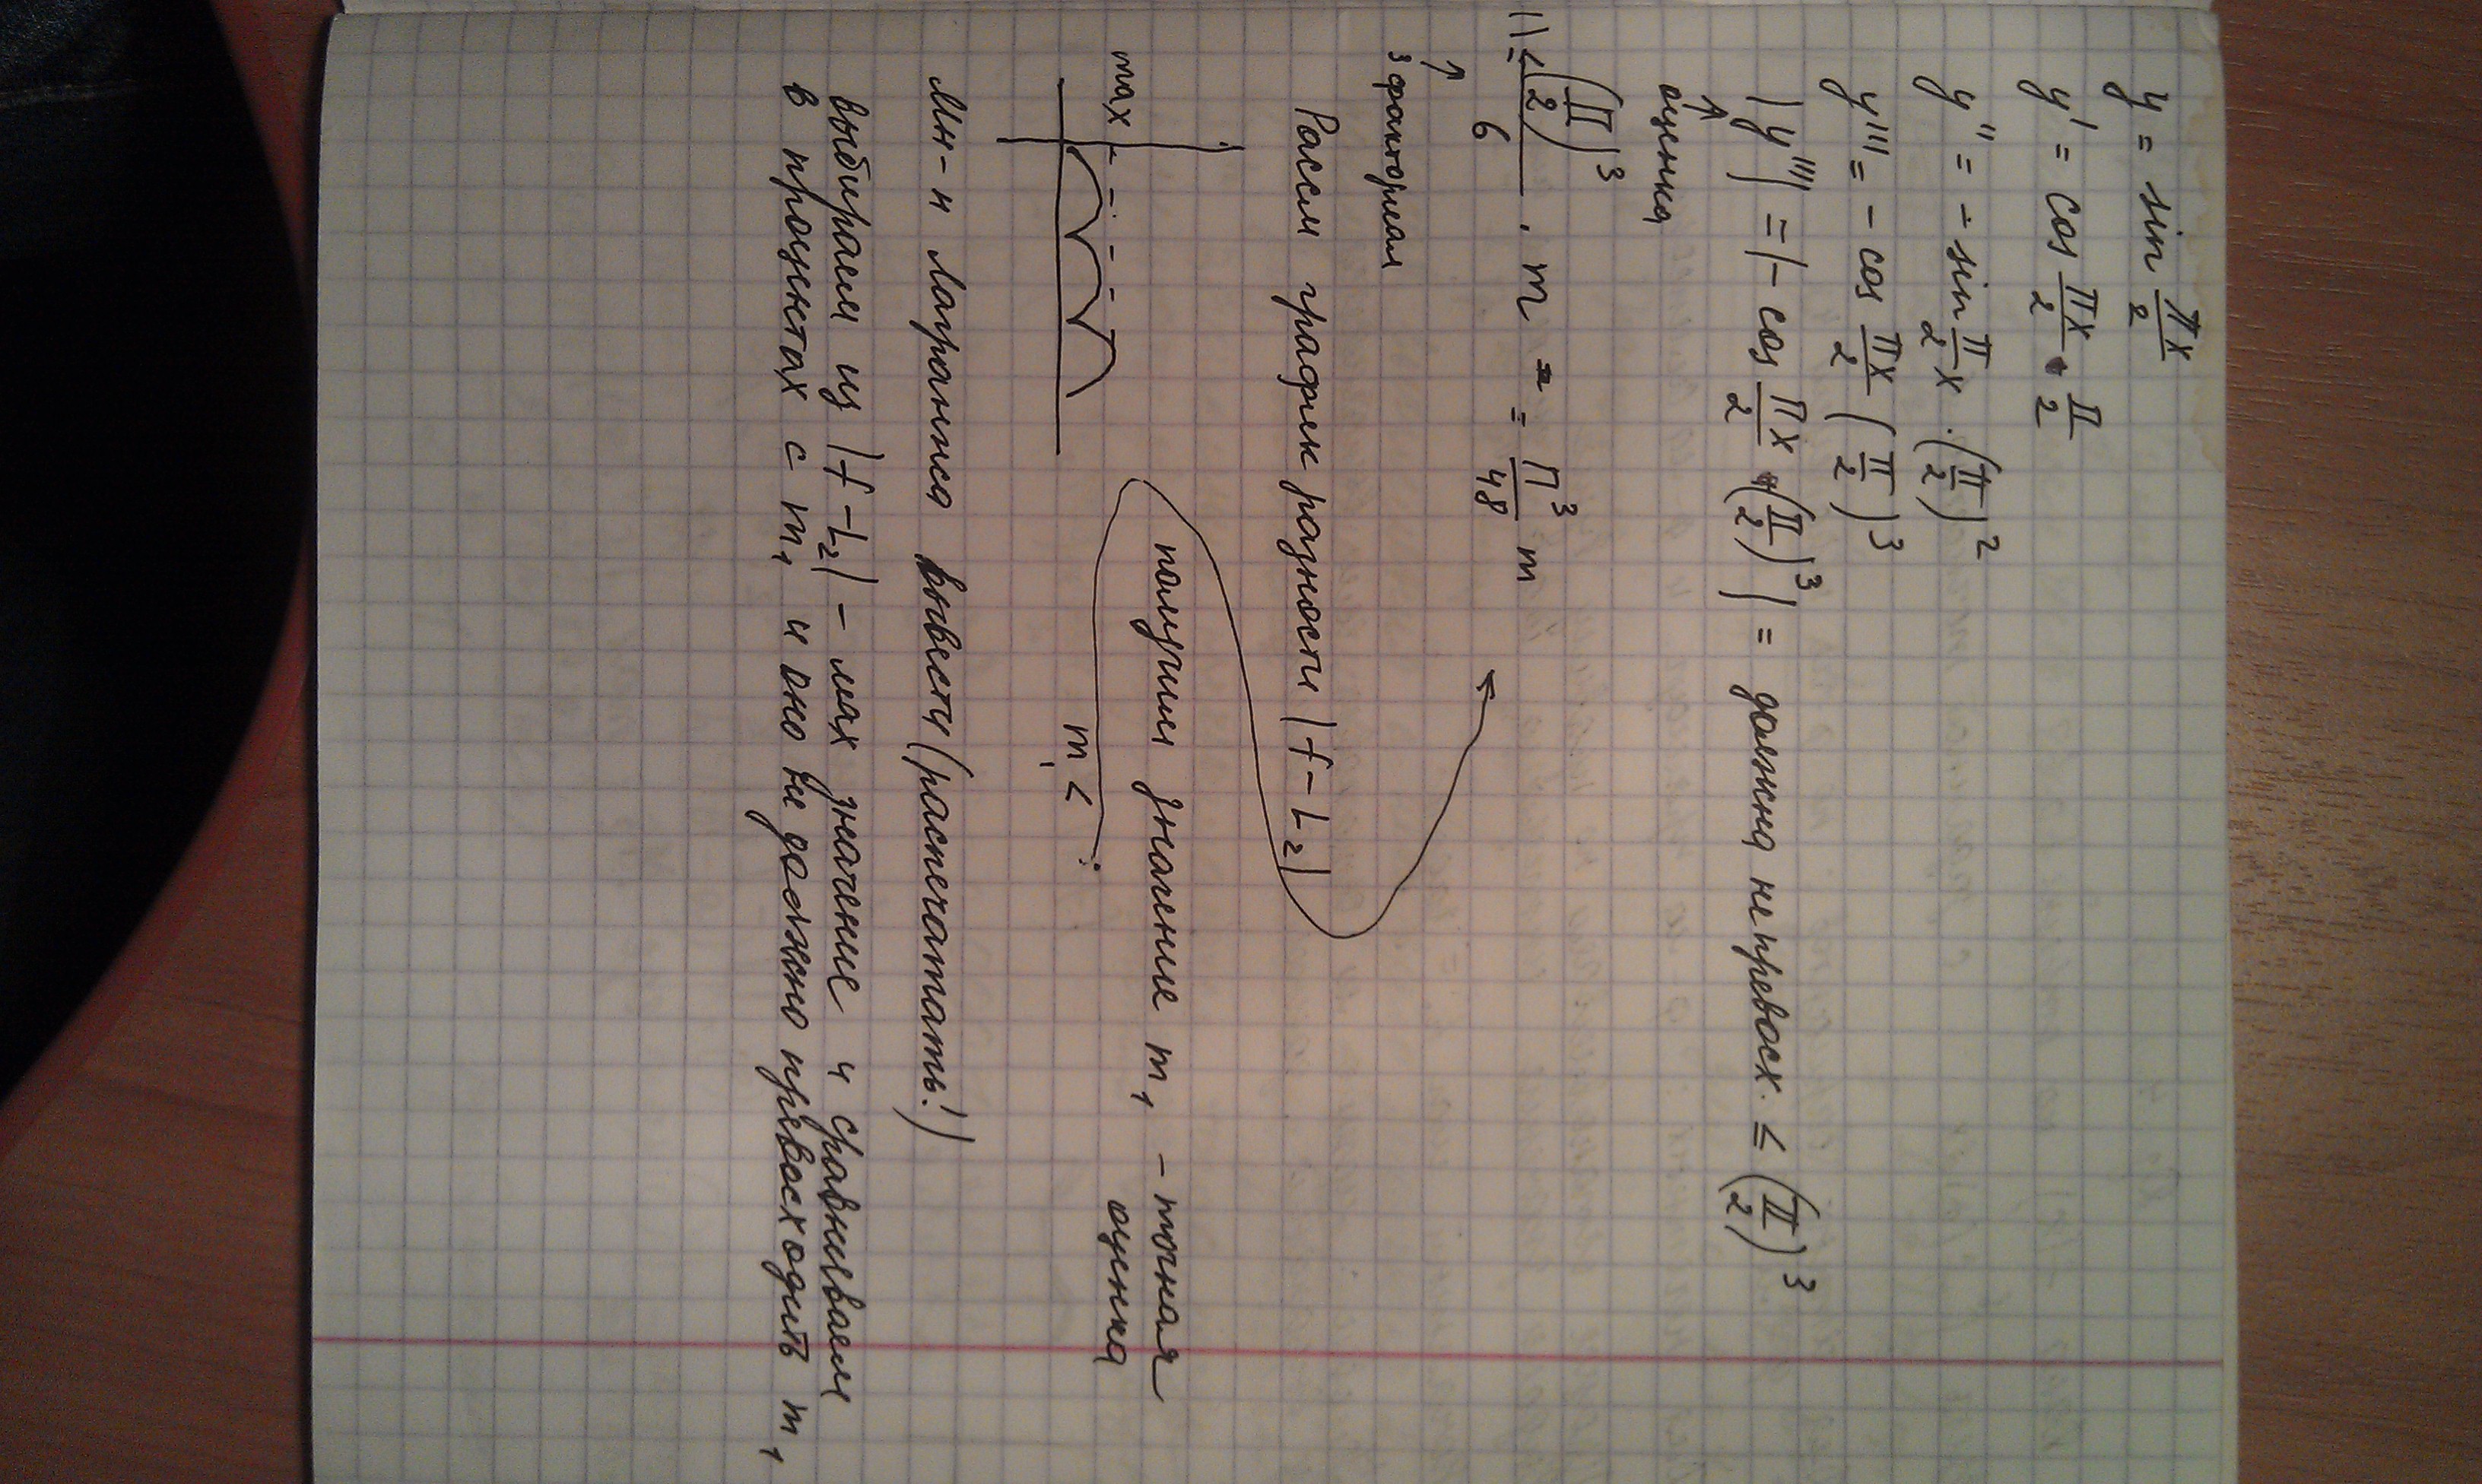 y = sin πx/2
y' = cos πx/2 · π/2
y'' = - sin π/2 x · (π/2)²
y''' = - cos πx/2 (π/2)³
|y'''| = |- cos πx/2 · (π/2)³| = должна не превосх. ≤ (π/2)³
↑
оценка
|| ≤ (π/2)³/6 · m = = π³/48 m
↑
3 факториал
Рассм график разности |f - L₂|
получим значение m₁ - точная
оценка
max
m₁ <
Мн-н Лагранжа вывести (распечатать!)
выбираем из |f - L₂| - мах значение и сравниваем
в процентах с m₁ и оно не должно превосходить m₁